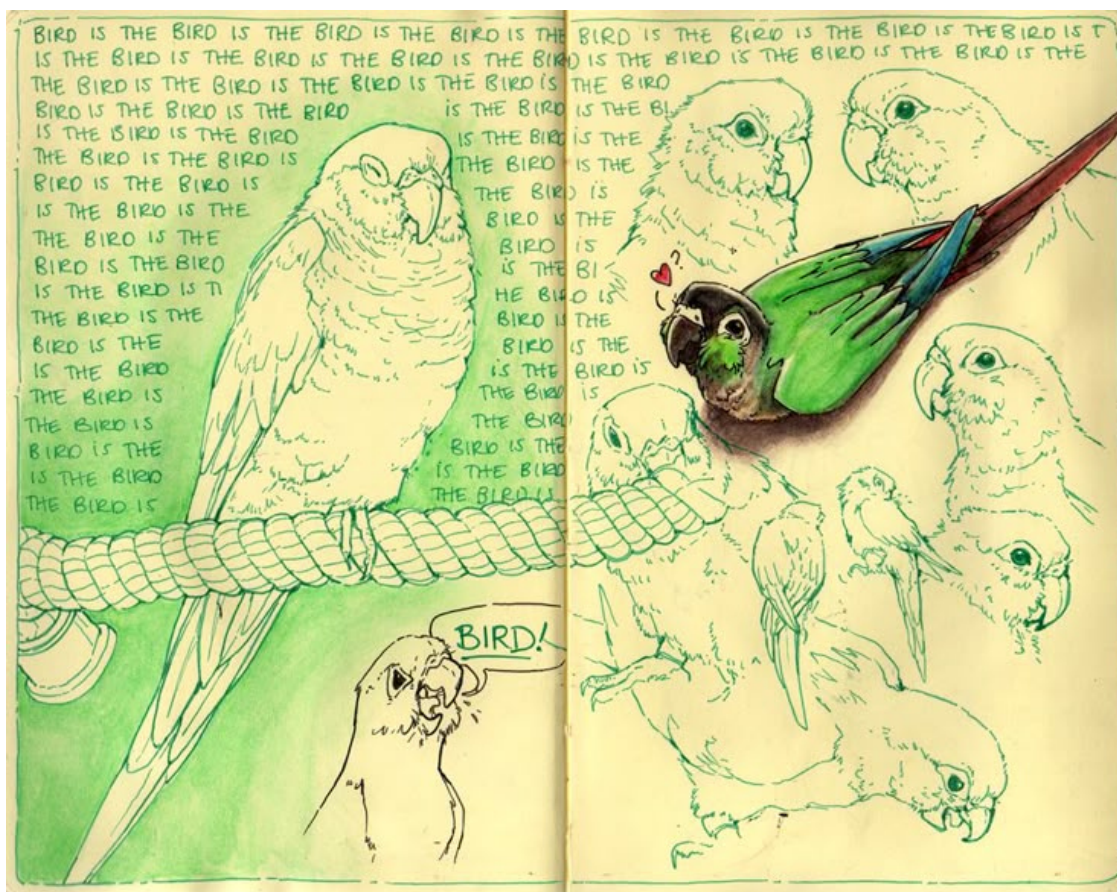 BIRD IS THE BIRD IS THE BIRD IS THE BIRD IS THE BIRD IS THE BIRD IS THE BIRD IS THE BIRD IS T
IS THE BIRD IS THE BIRD IS THE BIRD IS THE BIRD IS THE BIRD IS THE BIRD IS THE BIRD IS THE
THE BIRD IS THE BIRD IS THE BIRD IS THE BIRD IS THE BIRD
BIRD IS THE BIRD IS THE BIRD IS THE BIRD IS THE BI
IS THE BIRD IS THE BIRD IS THE BIRD IS THE
THE BIRD IS THE BIRD IS THE BIRD IS THE
BIRD IS THE BIRD IS THE BIRD IS
IS THE BIRD IS THE BIRD IS THE
THE BIRD IS THE BIRD IS
BIRD IS THE BIRD IS THE BI
IS THE BIRD IS T HE BIRD IS
THE BIRD IS THE BIRD IS THE
BIRD IS THE BIRD IS THE
IS THE BIRD IS THE BIRD IS
THE BIRD IS THE BIRD IS
THE BIRD IS THE BIRD
BIRD IS THE BIRD IS THE
IS THE BIRD IS THE BIRD
THE BIRD IS THE BIRD IS
?
BIRD!